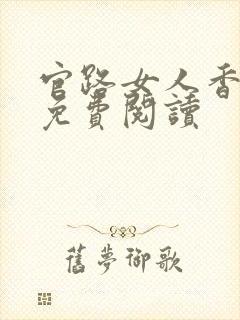 官路女人香
免費閱讀
舊夢御歌